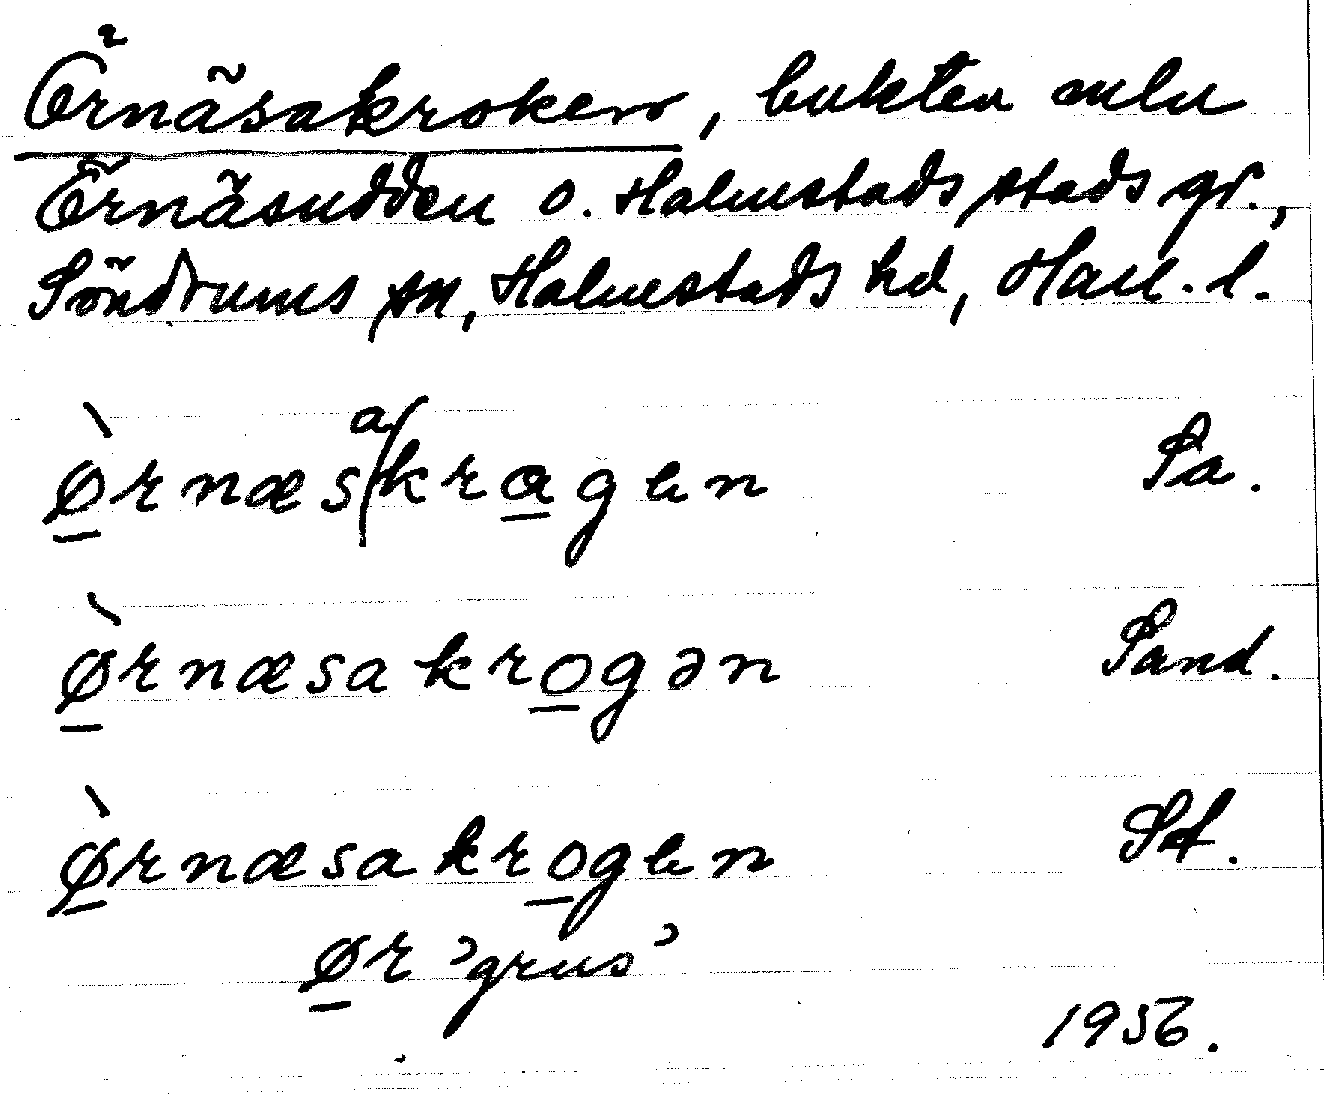 Örnäsakroken, bukten mln
Örnäsudden o. Halmstads stads gr.,
Söndrums sn, Halmstads hd, Hall. l.
ø̲̀rnæsakra̲gen Sa.
ø̲̀rnæsakro̲gən Sand.
ø̲̀rnæsakro̲gen Sf.
ø̲r 'grus'
1956.